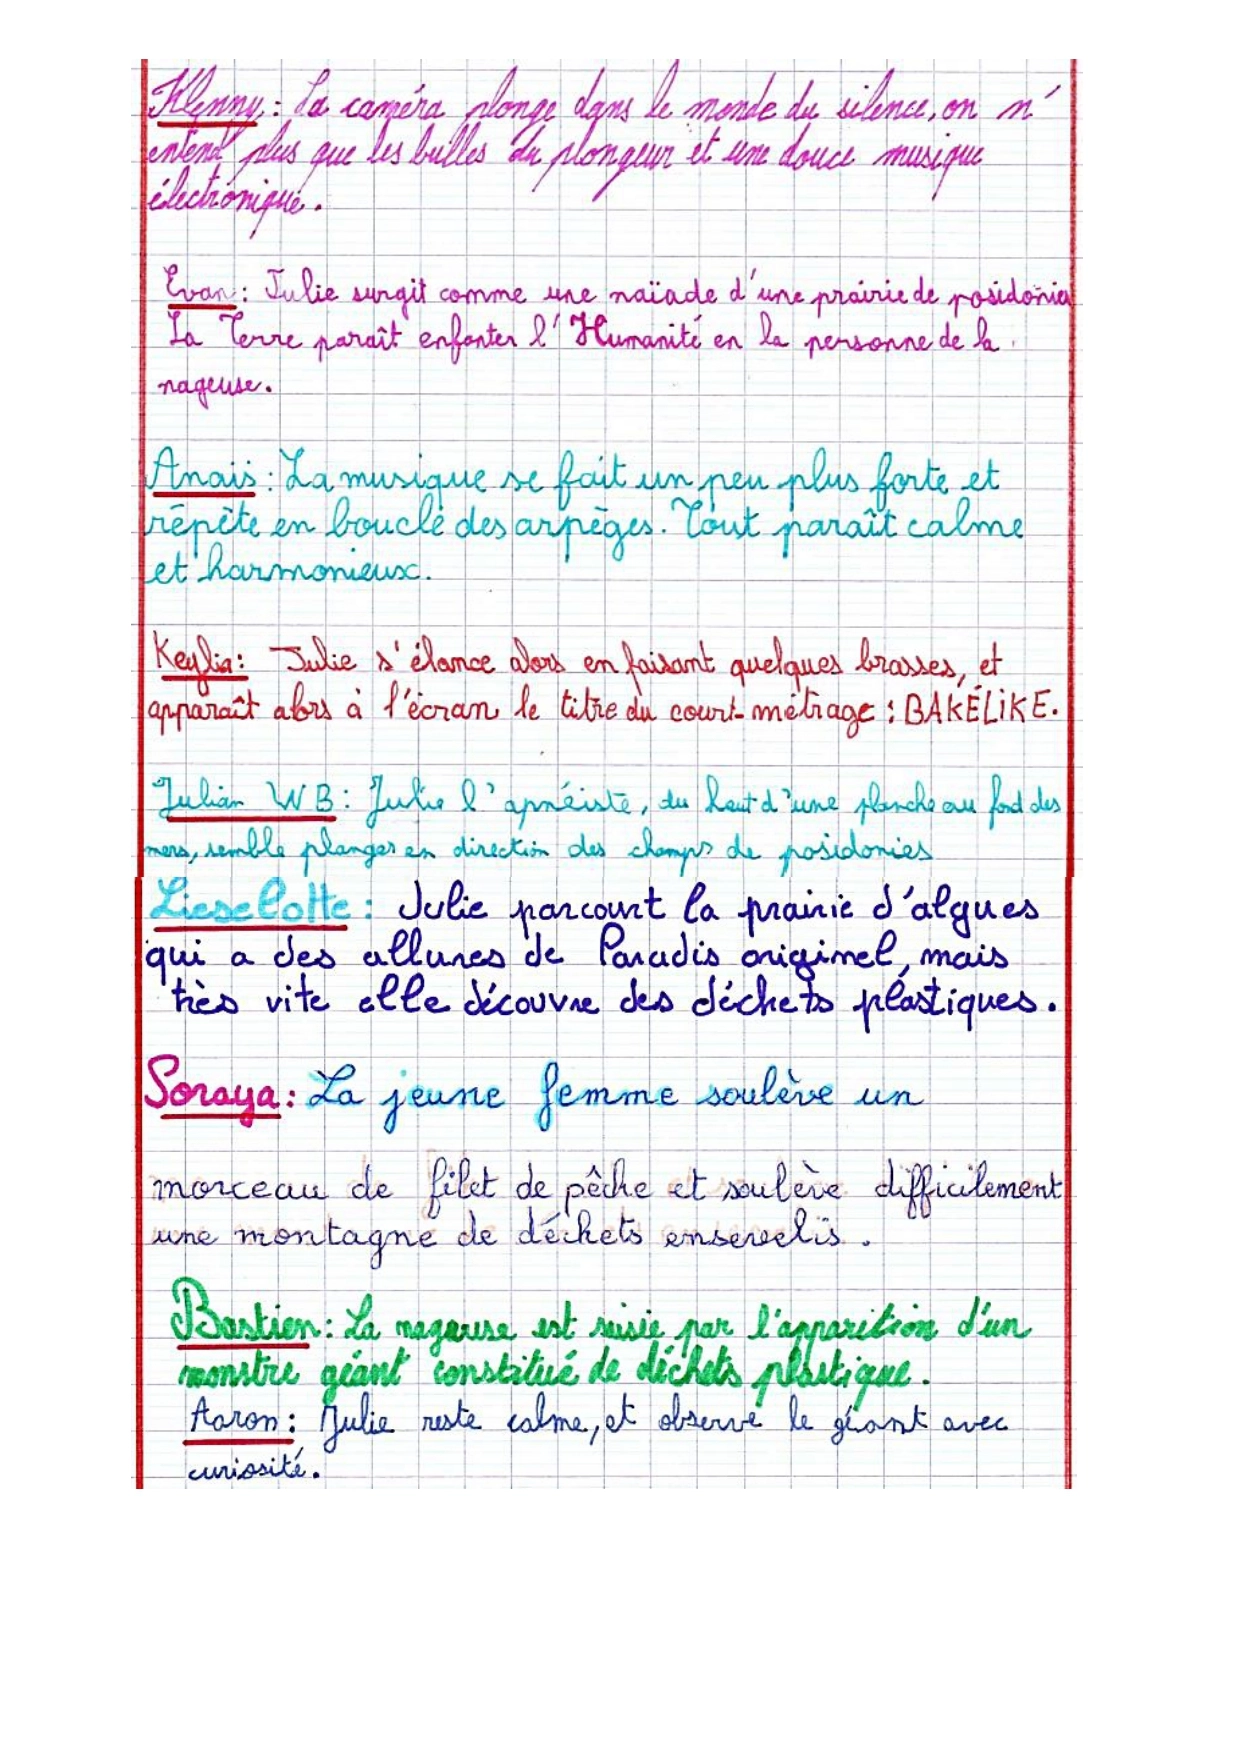 Klenny : La caméra plonge dans le monde du silence, on n'
entend plus que les bulles du plongeur et une douce musique
électronique.
Evan : Julie surgit comme une naïade d'une prairie de posidonies
La Terre paraît enfanter l'Humanité en la personne de la
nageuse.
Anais : La musique se fait un peu plus forte et
répète en boucle des arpèges. Tout paraît calme
et harmonieux.
Keylia : Julie s'élance alors en faisant quelques brasses, et
apparaît alors à l'écran le titre du court-métrage : BAKÉLIKE.
Julian WB : Julie l'apnéiste, du haut d'une planche au fond des
mers, semble plonger en direction des champs de posidonies
Lieselotte : Julie parcourt la prairie d'algues
qui a des allures de Paradis originel, mais
très vite elle découvre des déchets plastiques.
Soraya : La jeune femme soulève un
morceau de filet de pêche et soulève difficilement
une montagne de déchets ensevelis.
Bastien : La nageuse est saisie par l'apparition d'un
monstre géant constitué de déchets plastique.
Aaron : Julie reste calme, et observe le géant avec
curiosité.